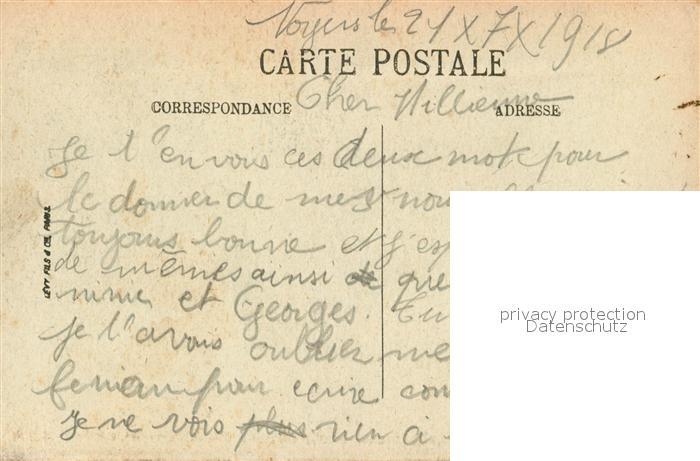 Noyers le 21 X 7 X 1918
CARTE POSTALE
CORRESPONDANCE
ADRESSE
Cher
Je t'envois ces deux mots pour
te donner de mes nou
toujours bonne et j'esp
de mêmes ainsi que
et Georges. Tu
je t'avais oublier me
pour ecrire com
Je ne vois plus rien a
LEVY FILS & Cie, PARIS
privacy protection
Datenschutz